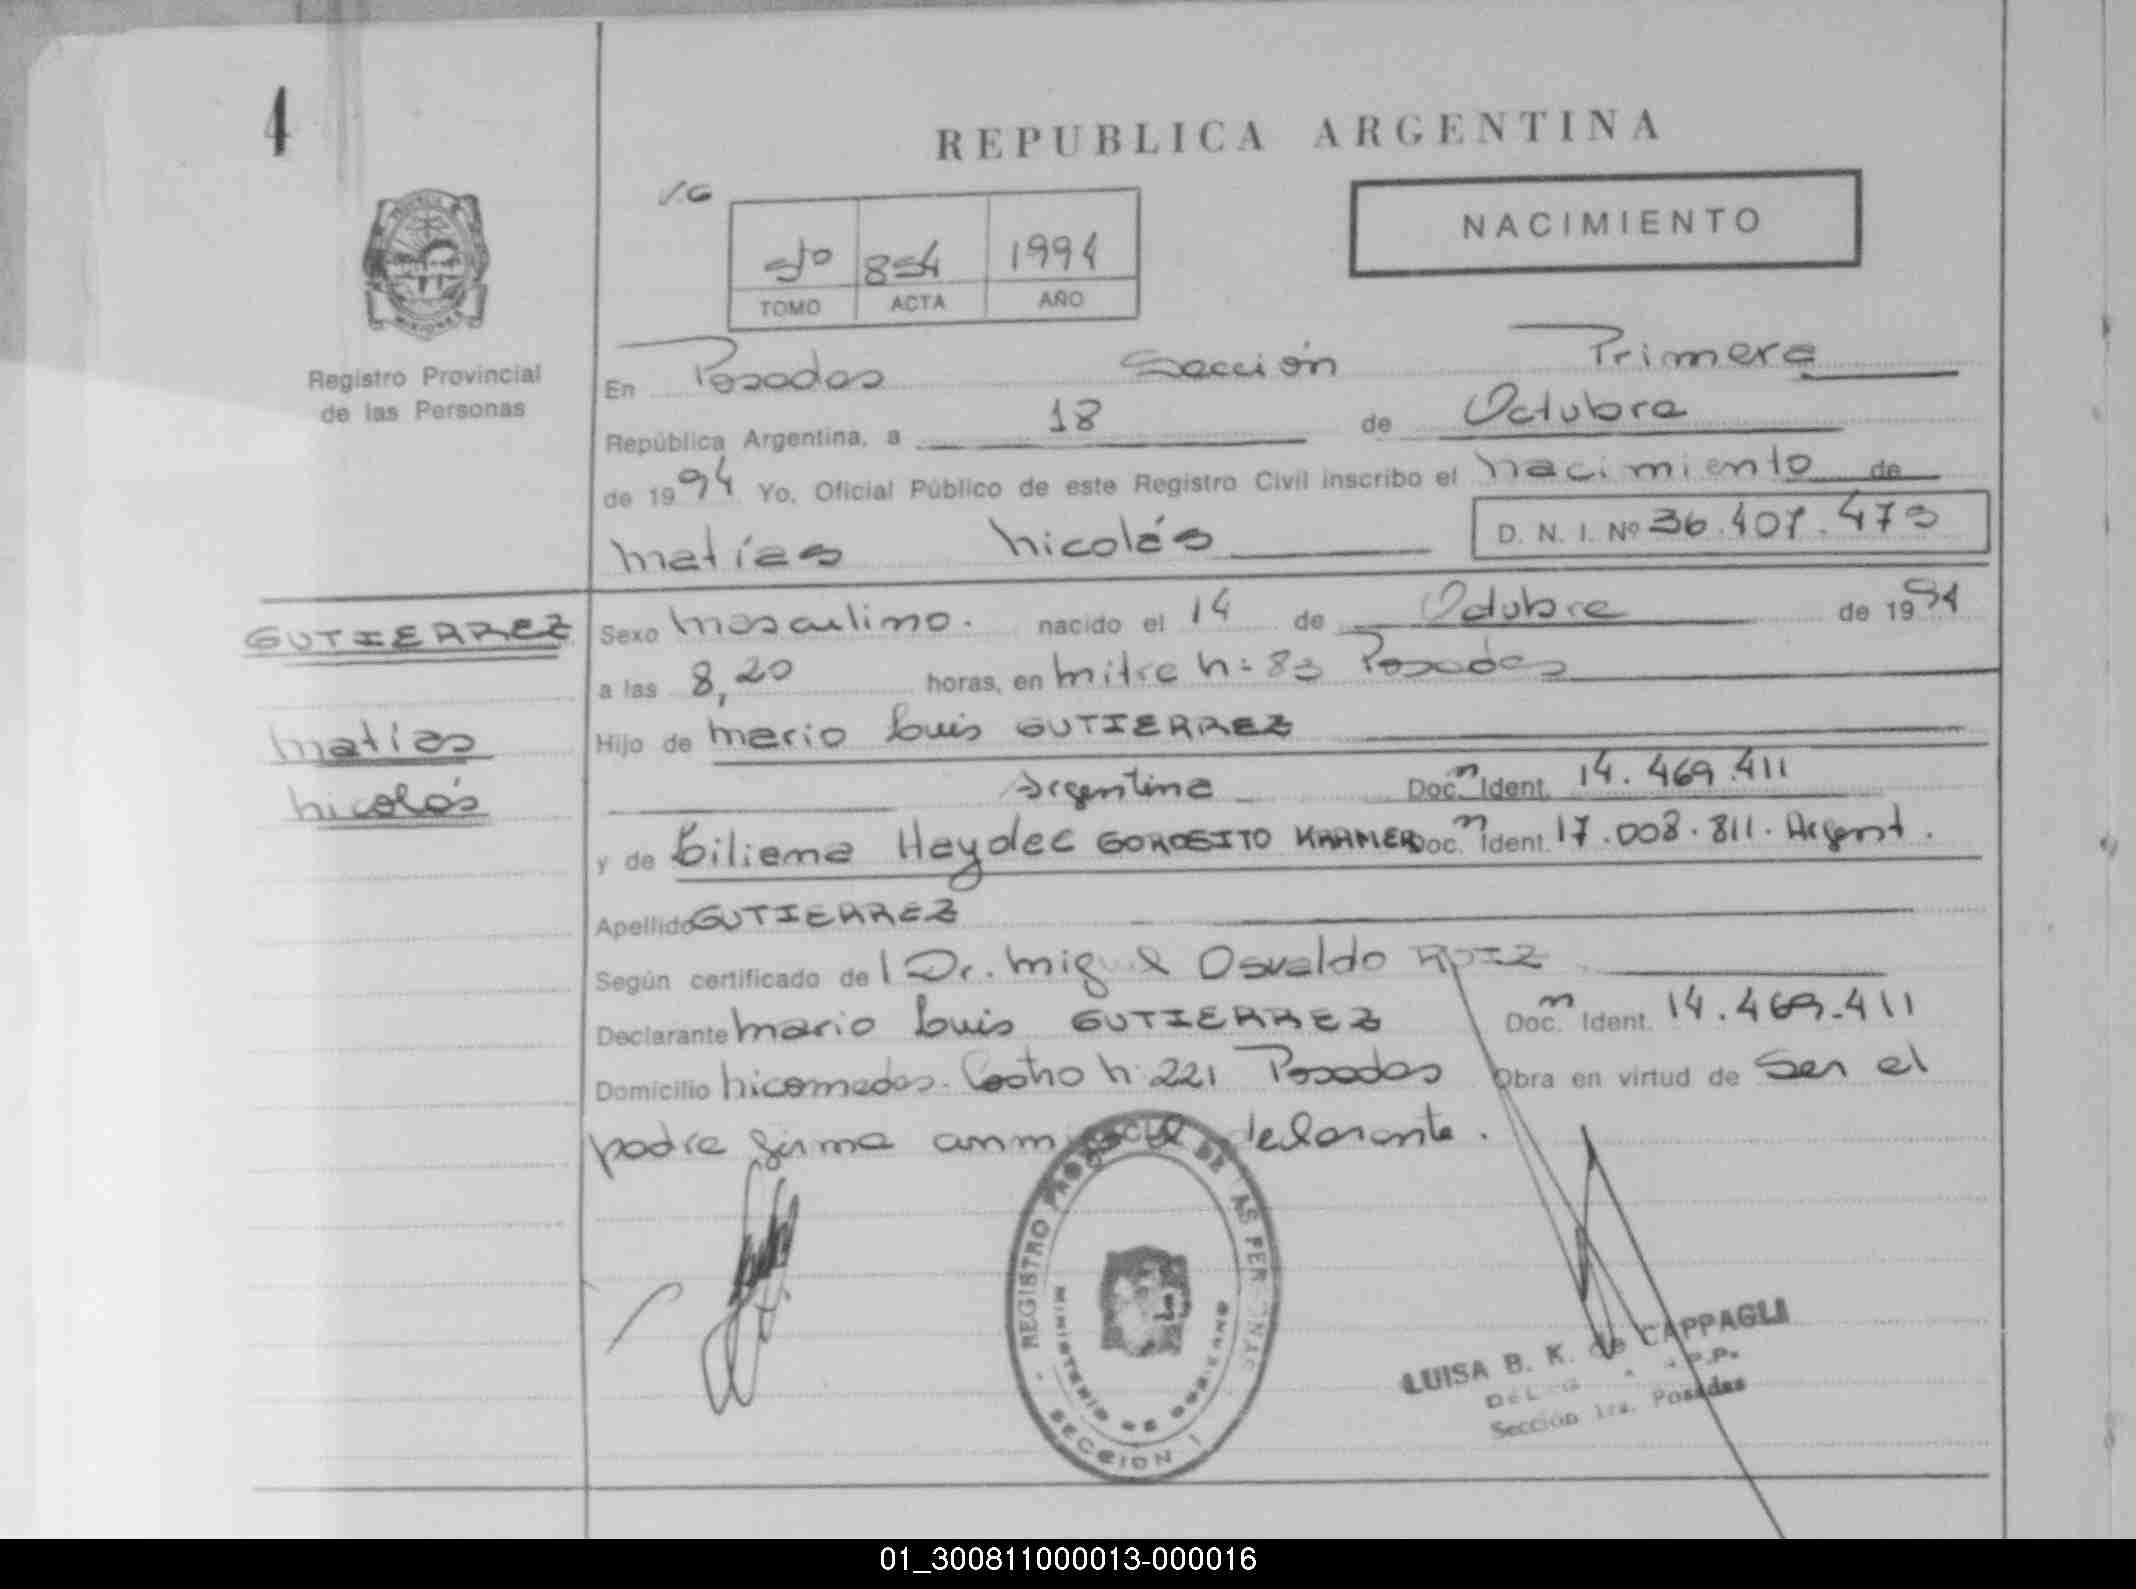 4
REPUBLICA ARGENTINA
NACIMIENTO
5to 854 1994
TOMO ACTA AÑO
Registro Provincial
de las Personas
En Posadas Sección Primera
República Argentina, a 18 de Octubre
de 1994 Yo, Oficial Público de este Registro Civil inscribo el nacimiento de
Matías Nicolás D. N. I. Nº 36.407.473
GUTIERREZ
Matías
Nicolás
Sexo Masculino. nacido el 14 de Octubre de 1994
a las 8,20 horas, en Mitre N= 83 Posadas
Hijo de Mario Luis GUTIERREZ
Argentina Doc. Ident. 14.469.411
y de Liliana Haydee GOROSITO KRAMER Doc. Ident. 17.008.811. Argent.
Apellido GUTIERREZ
Según certificado de l Dr. Miguel Osvaldo
Declarante Mario Luis GUTIERREZ Doc. Ident. 14.469.411
Domicilio Nicomedes Castro N: 221 Posadas Obra en virtud de Ser el
padre firma declarante.
REGISTRO PROVINCIAL DE LAS PERSONAS
MINISTERIO DE GOBIERNO
SECCION I
LUISA B. K. de CAPPAGLI
Sección 1ra. Posadas
01_300811000013-000016